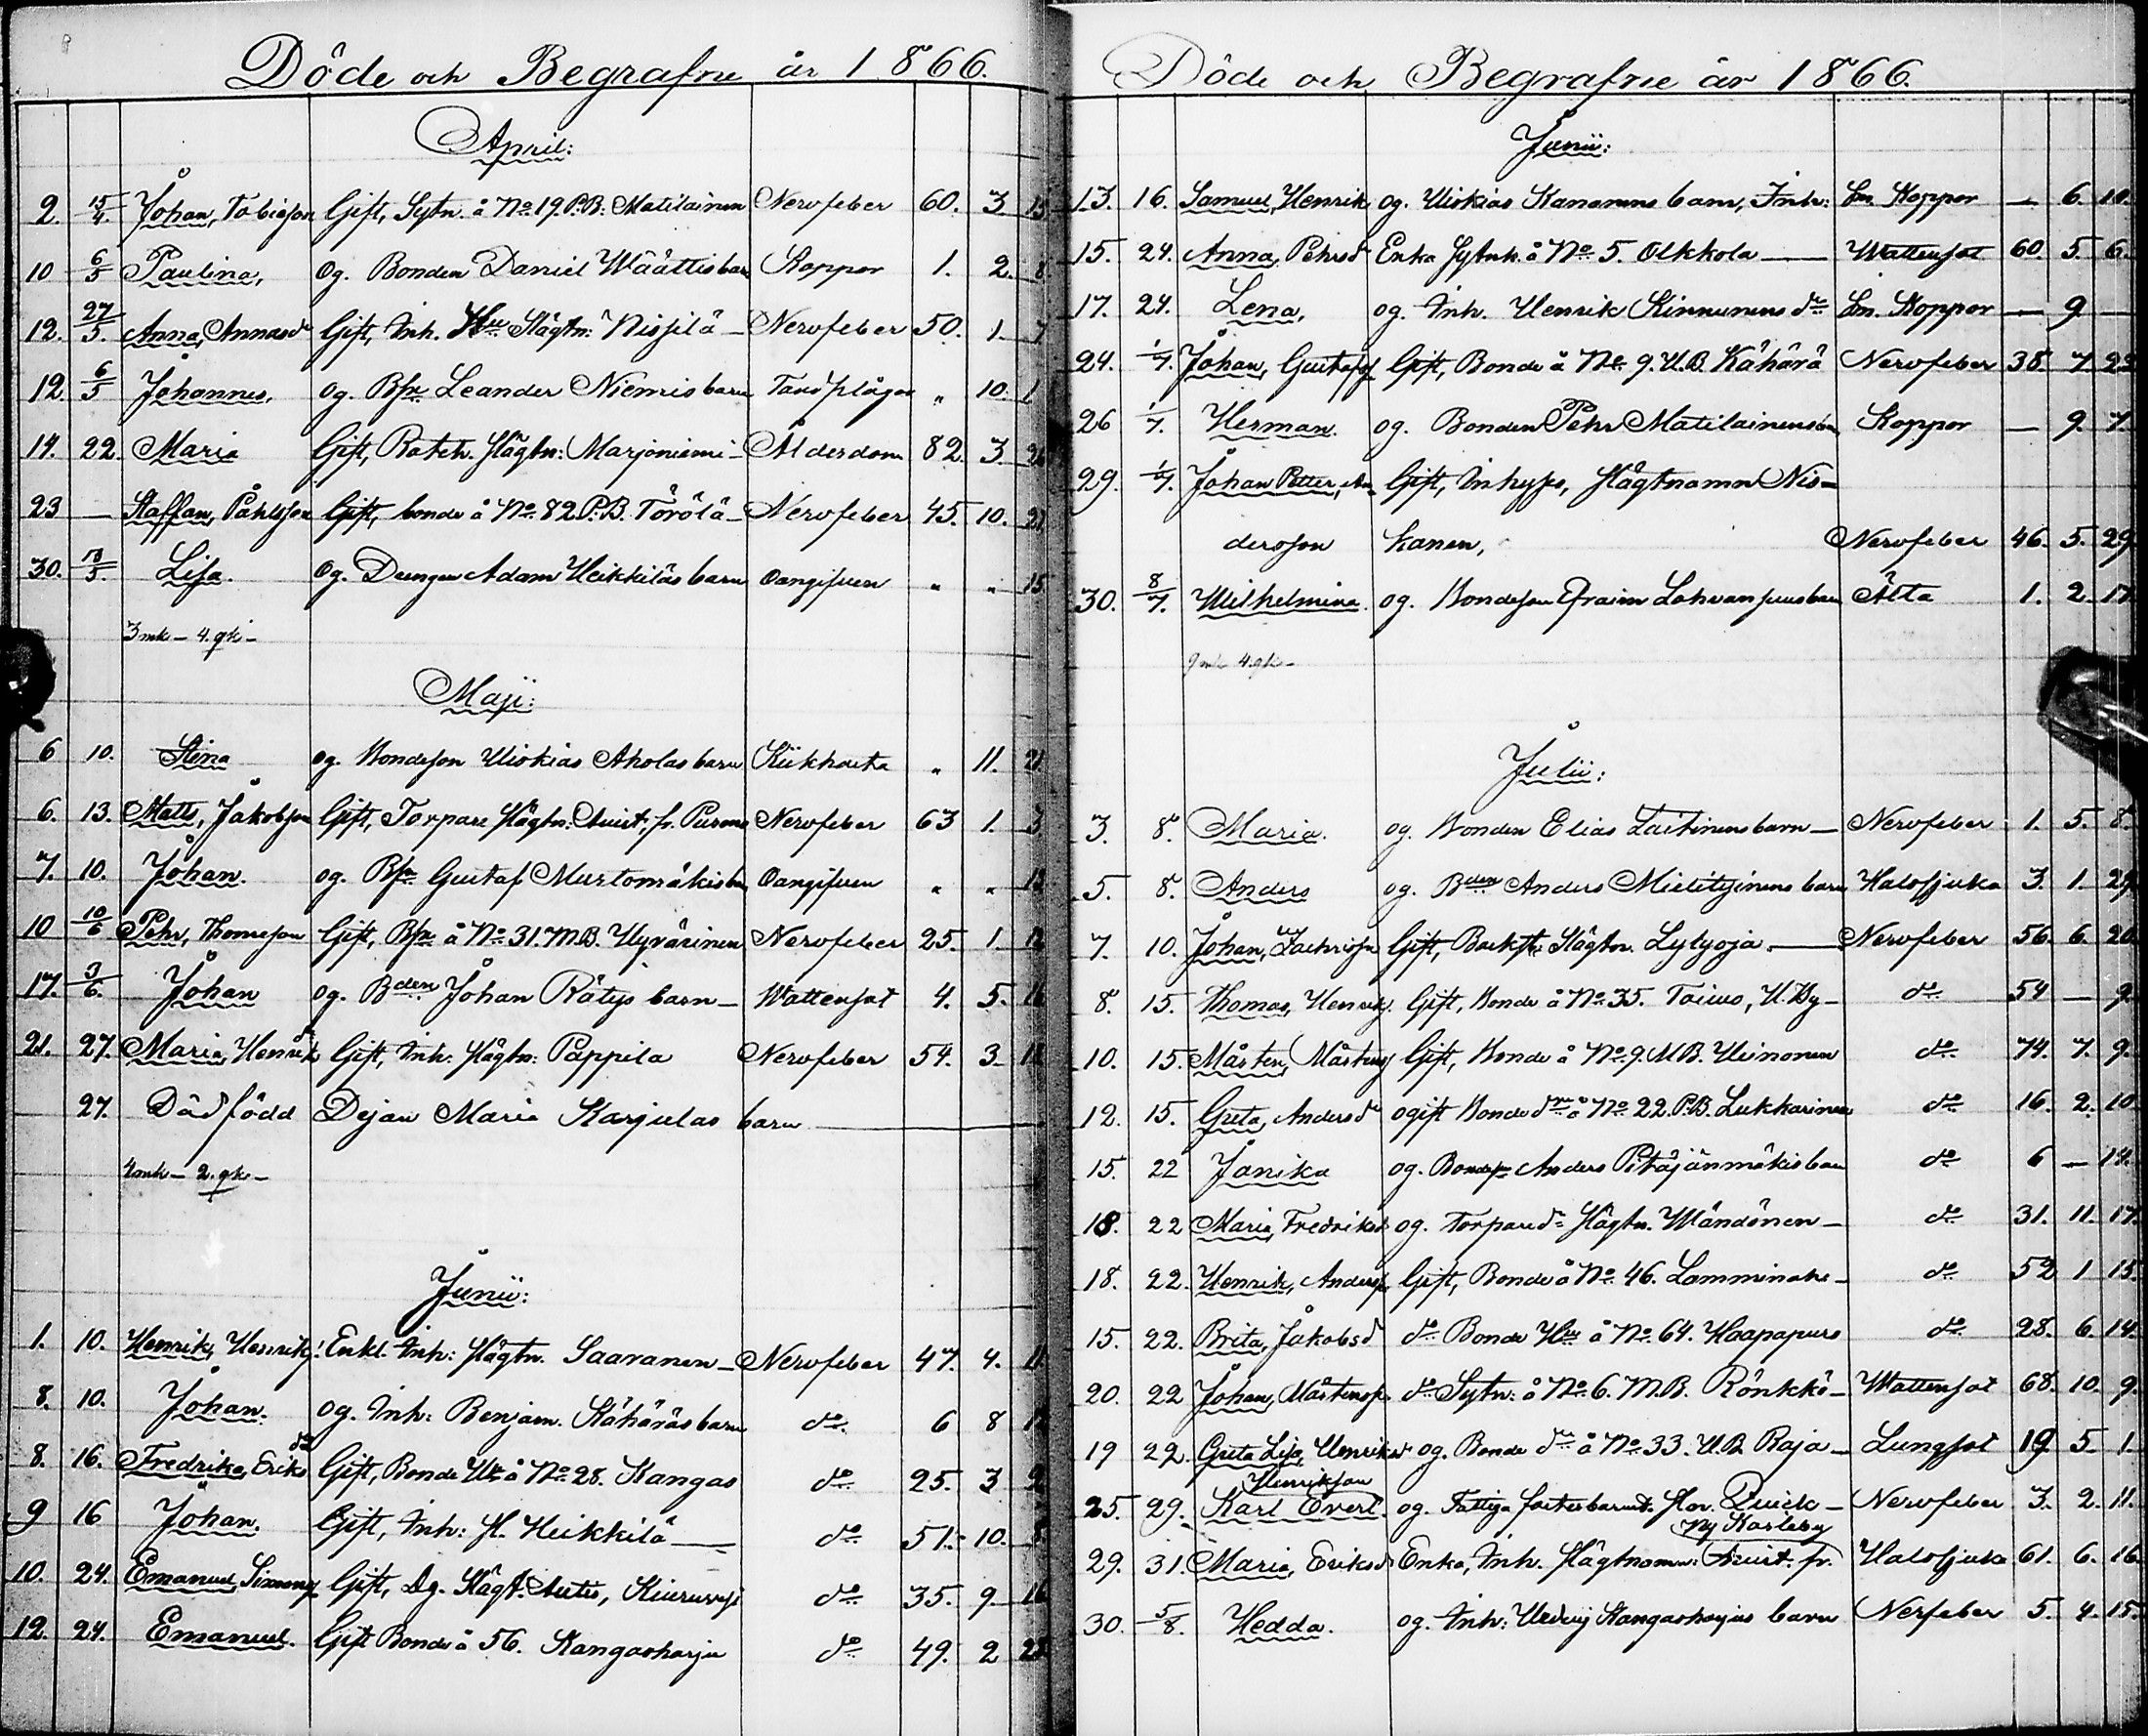 Döde och Begrafne år 1866.
April:
2. 15/4. Johan, Tobiasson Gift, Sytn. å No 19. P.B. Matilainen Nervfeber 60. 3 15
10 6/5 Paulina, og. Bonden Daniel Wäättis barn Koppor 1. 2. 8
12. 27/5. Anna, Annasdr Gift, Inh. Hu Slägtn: Nissilä Nervfeber 50. 1. 7
12. 6/5 Johannes, og. Bsn Leander Niemis barn Tandplågor " 10. 1
14. 22. Maria Gift, Slägtn: Marjoniemi Ålderdom 82. 3.
23 — Staffan, Påhlsson Gift, bonde å No 82 P.B. Törölä Nervfeber 45. 10. 21
30. 13/5. Lisa. og. Drengen Adam Heikkiläs barn Oangifven " " 15
3 mk — 4. qk —
Maji:
6 10. Stina og. Bondeson Hiskias Aholas barn Kikhosta " 11. 21
6. 13. Matts, Jakobson Gift, Torpare Slägtn: fr. Nervfeber 63 1. 3
7. 10. Johan. og. Bsn Gustaf Murtomäkis bn Oangifven " " 13
10 10/6 Pehr, Thomeson Gift, Bsn å No 31. M.B. Hyvärinen Nervfeber 25. 1. 12
17. 3/6. Johan og. Bden Johan Rätys barn Wattensot 4. 5. 16
21. 27. Maria, Henriks Gift, Inh: Slägtn: Pappila Nervfeber 54. 3
27. Dödfödd Dejan Maria Karjulas barn
4 mk — 2. qk —
Junii:
1. 10. Henrik, Henriks. Enkl. Inh: Slägtn. Saaranen Nervfeber 47. 4. 11
8. 10. Johan. og. Inh: Benjam. Kähäräs barn do 6 8
8. 16. Fredrika, Eriksdr Gift, Bonde Hu å No 28. Kangas do 25. 3
9 16 Johan. Gift, Inh: Sl. Heikkilä do 51. 10. 8
10. 24. Emanuel, Simons Gift, Dg. Slägt. Autis, Kiuruvesi do 35. 9 16
12. 24. Emanuel. Gift Bonde å 56. Kangasharju do 49. 2 28
Döde och Begrafne år 1866.
Junii:
13. 16. Samuel, Henrik og. Hiskias Kananens barn, Inh: Sm. Koppor — 6. 10.
15. 24. Anna, Pehrsdr Enka Sytnk. å No 5. Olkkola Wattensot 60. 5. 6.
17. 24. Lena, og. Inh. Henrik Kinnunens dr Sm. Koppor — 9 —
24. 1/7. Johan, Gustafs Gift, Bonde å No 9. U.B. Kähärä Nervfeber 38. 7 23
26 1/7. Herman. og. Bonden Pehr Matilainens bn Koppor — 9. 7.
29. 1/7. Johan Petter, An- Gift, Inhyses, Slägtnamn Nis-
dersson kanen, Nervfeber 46. 5. 29
30. 8/7. Wilhelmina. og. Bondeson Efraim Lohvansuus barn Ålta 1. 2. 17
9 mk 4. qk —
Julii:
3. 8. Maria. og. Bonden Elias Laitinens barn Nervfeber 1. 5. 8.
5. 8. Anders og. Bden Anders Mielityinens barn Halssjuka 3. 1. 29
7. 10. Johan, Zachrisn Gift, Slägtn. Lylyoja Nervfeber 56. 6. 20
8. 15. Thomas, Henriks. Gift, Bonde å No 35. Toivio, do 54 — 9.
10. 15. Mårten, Mårtens Gift, Bonde å No 9. M.B. Heinonen do 74. 7. 9.
12. 15. Greta, Andersdr ogift Bonde dr å No 22. P.B. Lukkarinen do 16. 2. 10
15. 22 Janika og. Bondesn Anders Pitäjänmäkis barn do 6 — 14.
18. 22 Maria, Fredriksd og. Torpared. Slägtn. Wändönen do 31. 11. 17.
18. 22. Henrik, Anderss. Gift, Bonde å No 46. Lamminaho do 52 1 15.
15. 22. Brita, Jakobsd do Bonde Hu å No 64. Haapapuro do 28. 6. 14.
20. 22 Johan, Mårtensn do Sytn: å No 6. M.B. Rönkkö Wattensot 68. 10. 9.
19 22. Greta Lisa, Henriksdr og. Bonde dr å No 33. U.B. Raja Lungsot 19. 5. 1.
Henrikson
25. 29. Karl Evert. og. Fattiga fosterbarnet. Quick Nervfeber 3. 2. 11.
Ny Karleby
29. 31. Maria, Eriksdr Enka, Inh. Slägtnamn: fr. Halssjuka 61. 6. 16
30. 5/8. Hedda. og. Inh: Hedvig Kangasharjus barn Nerfeber 5. 4. 15